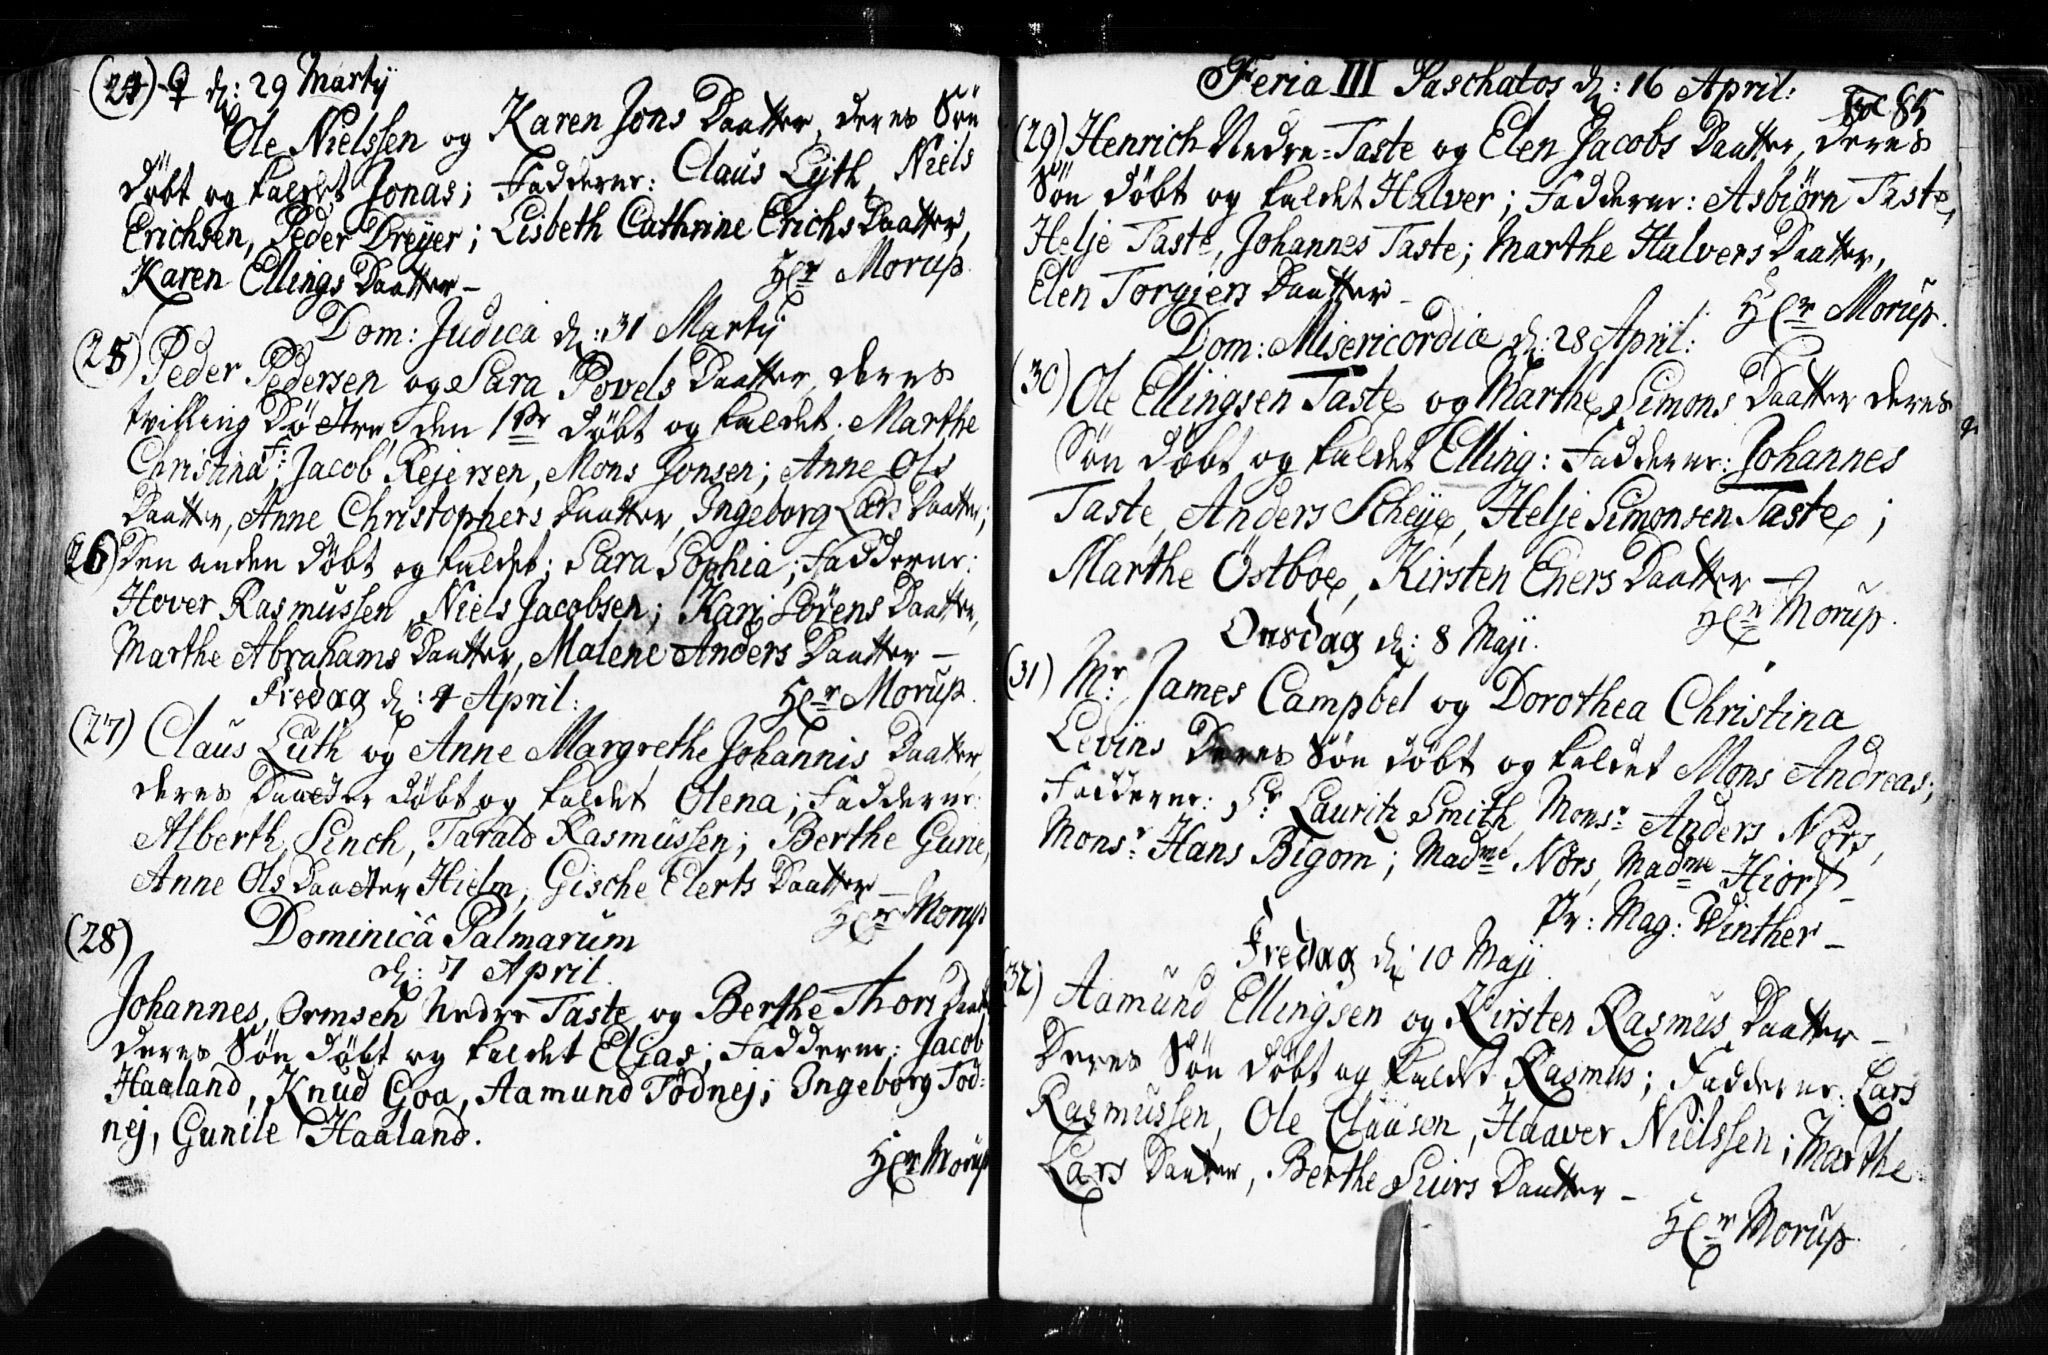 (24) ♀ d: 29 Martij
Ole Nielssen og Karen Jons Daatter, deres Søn
døbt og kaldet Jonas; Fadderne: Claus Lyth, Niels
Erichsen, Peder Dreyer; Lisbeth Cathrine Erichs Daatter,
Karen Ellings Daatter –
Hr Morup.
Dom: Judica d: 31 Martij
(25) Peder Pedersen og Sara Povels Daatter, deres
tvilling Døttre, den 1ste døbt og kaldet Marthe
Christina, F: Jacob Rejersen, Mons Jonsen; Anne Ols
Daatter, Anne Christophers Daatter, Ingeborg Lars Daatter;
(26) Den anden døbt og kaldet; Sara Sophia; Fadderne:
Hover Rasmussen, Niels Jacobsen; Kari Sørens Daatter,
Marthe Abrahams Daatter, Malene Anders Daatter –
Fredag d: 4 April:
Hr Morup.
(27) Claus Luth og Anne Margrethe Johannis Daatter,
deres Daatter døbt og kaldet Olena; Fadderne:
Alberth Sinch, Tarald Rasmussen; Berthe Gurie,
Anne Ols Daatter Hielm, Gische Elerts Daatter –
Hr Morup
(28) Dominica Palmarum
d: 7 April.
Johannes Ormsen Nedre Taste og Berthe Thors Daatt
deres Søn døbt og kaldet Elias; Fadderne: Jacob
Haaland, Knud Goa, Aamund Tødnej; Ingeborg Tød-
nej, Gunile Haaland.
Hr Morup
Feria III Paschatos d: 16 April:
85
(29) Henrich Nedre-Taste og Elen Jacobs Daatter, deres
Søn døbt og kaldet Halver; Fadderne: Asbiørn Taste,
Helje Taste, Johannes Taste; Marthe Halvers Daatter,
Elen Torgiers Daatter –
Hr Morup.
Dom: Misericordiæ d: 28 April:
(30) Ole Ellingsen Taste og Marthe Simons Daatter deres
Søn døbt og kaldet Elling: Fadderne: Johannes
Taste, Anders Scheje, Helje Simonsen Taste;
Marthe Østboe, Kirsten Eners Daatter –
Hr Morup.
Onsdag d: 8 Maji.
(31) Mr: James Campbel og Dorothea Christina
Levins Deres Søn døbt og kaldet Mons Andreas;
Fadderne: Sr Lauritz Smith, Monsr Anders Nørs,
Monsr: Hans Bigom; Madme Nørs, Madme Hiort –
Pr: Mag: Winther –
Fredag d: 10 Maji.
(32) Aamund Ellingsen og Kirsten Rasmus Daatter –
Deres Søn døbt og kaldet Rasmus; Fadderne: Lars
Rasmussen, Ole Clausen, Haaver Nielssen; Marthe
Lars Daatter, Berthe Siurs Daatter –
Hr Morup.